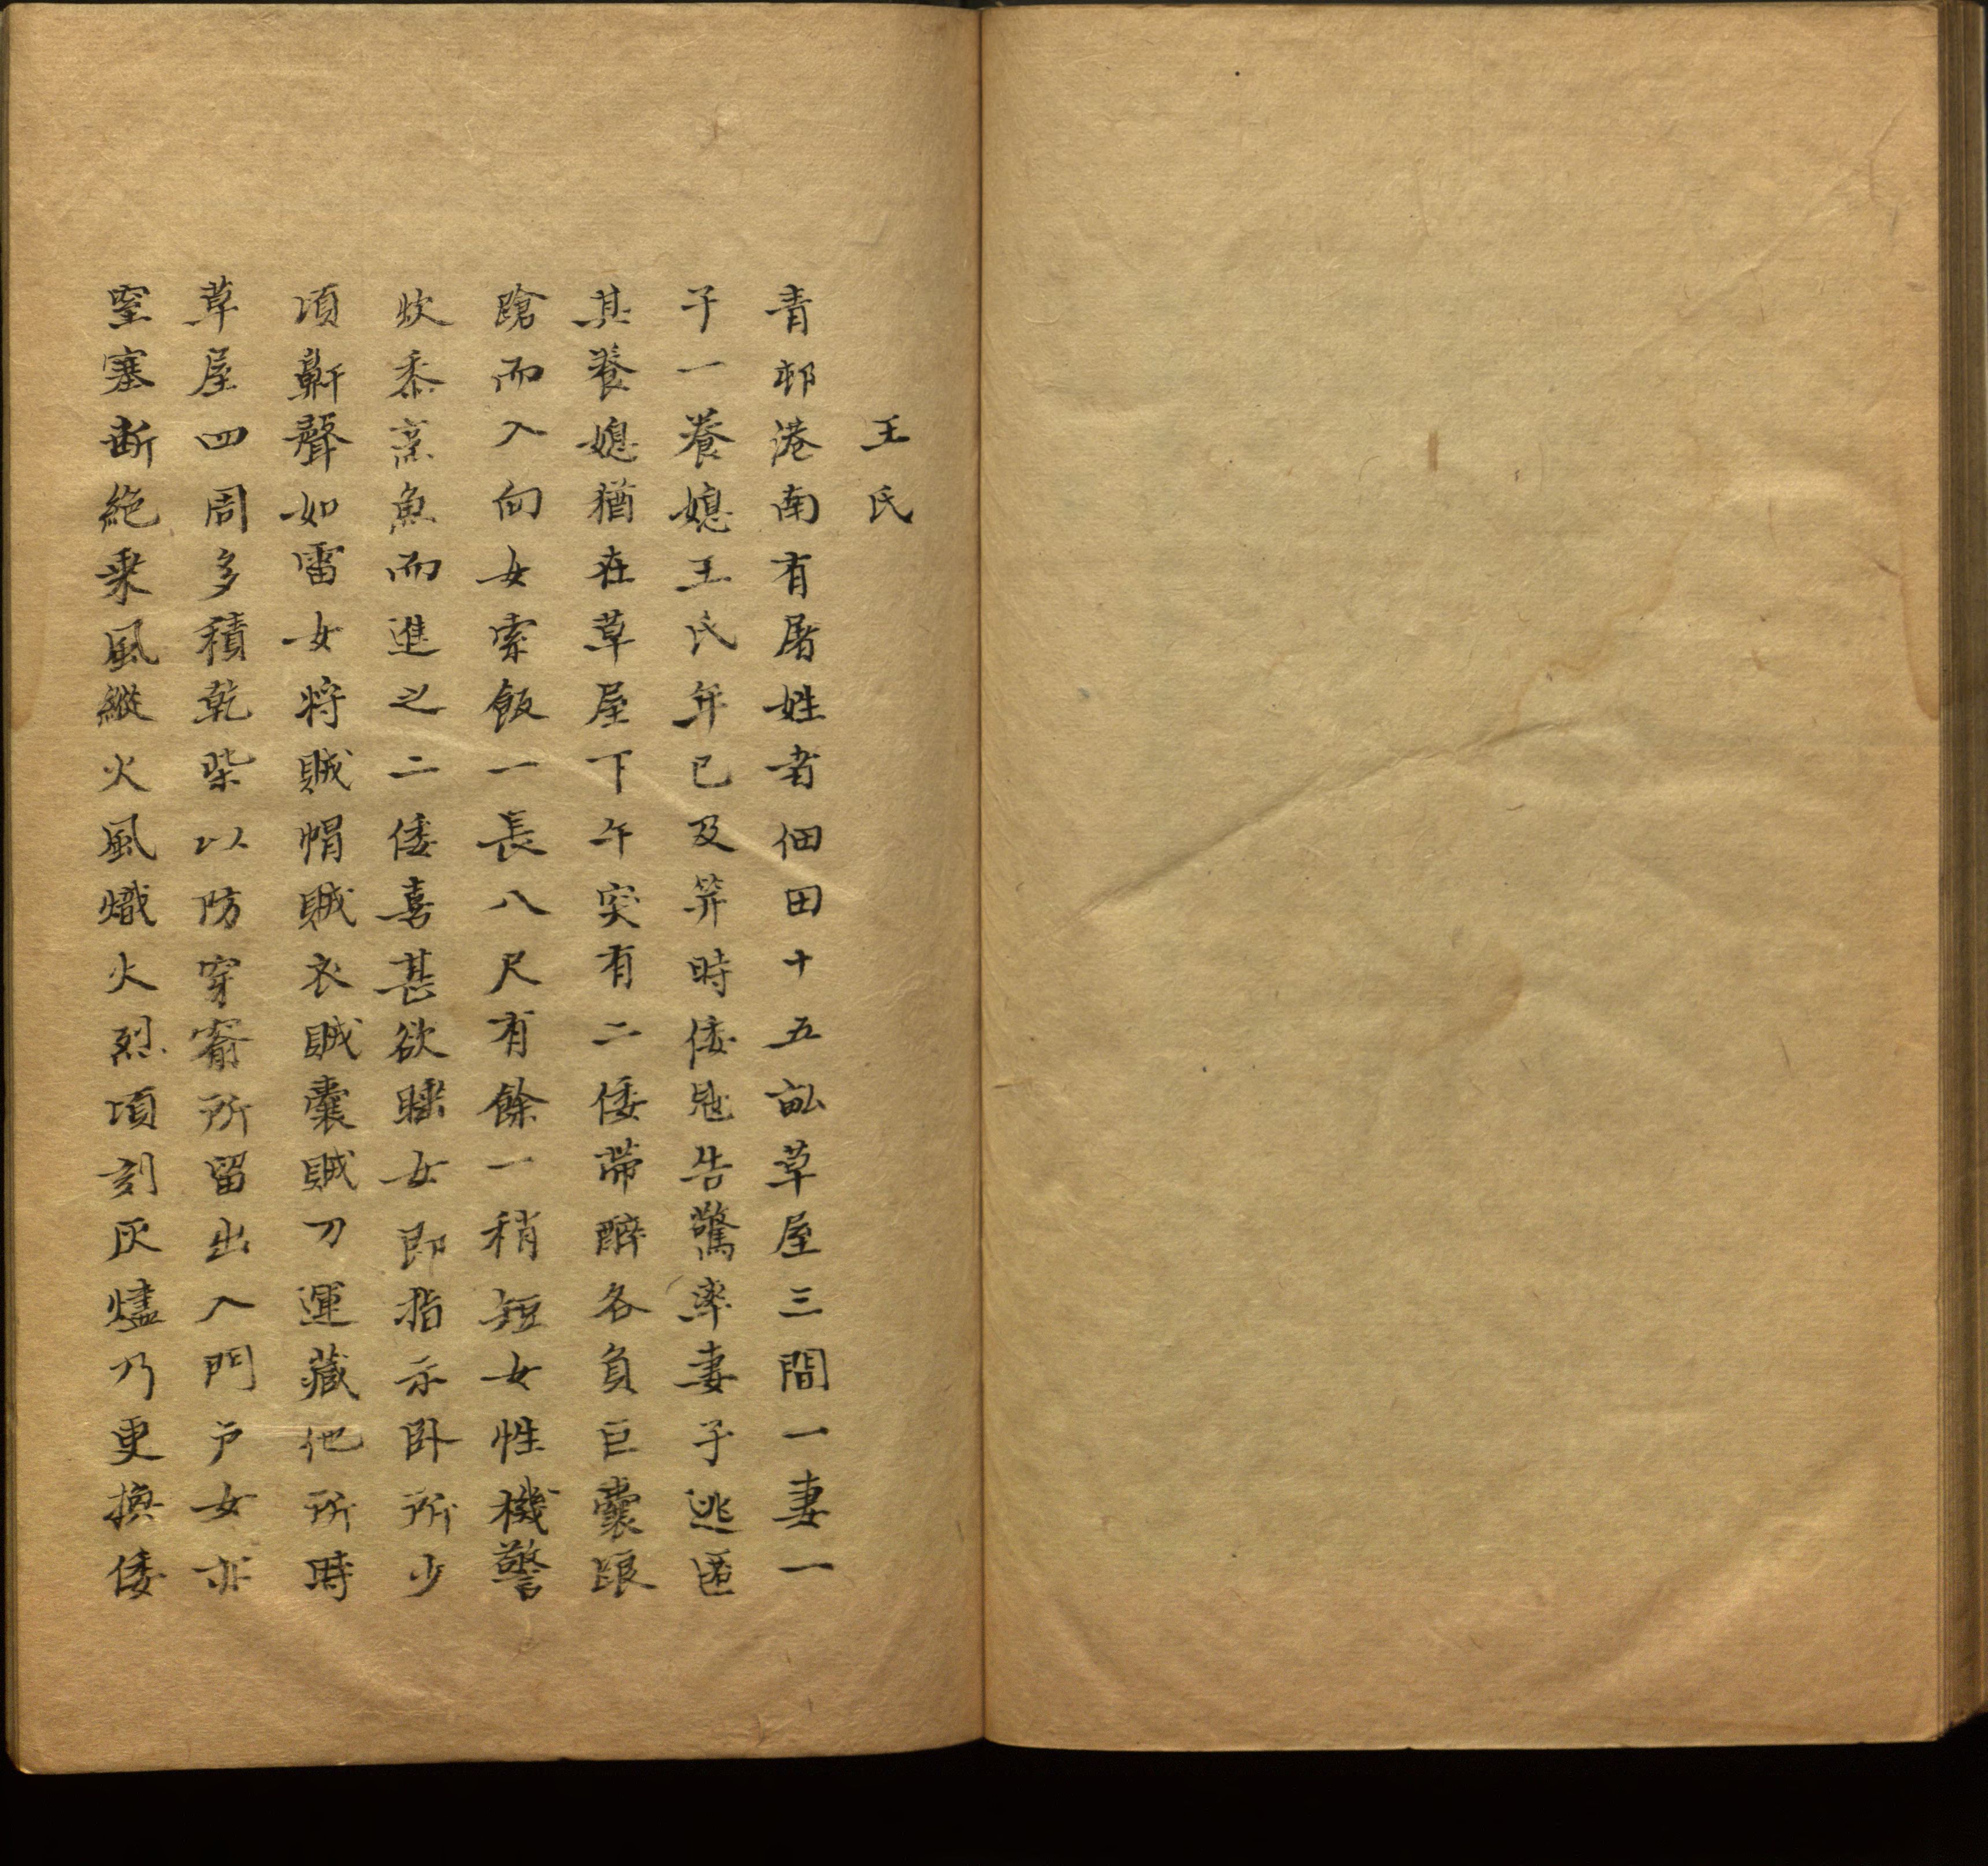 王氏
青邨港南有屠姓者佃田十五畝草屋三間一妻一
子一養媳王氏年已及笄時倭寇告驚率妻子逃匿
其養媳猶在草屋下午突有二倭帶醉各負巨囊踉
蹌而入向女索飯一長八尺有餘一稍短女性機警
炊黍烹魚而進之二倭喜甚欲睡女即指示卧所少
頃鼾聲如雷女將賊帽賊衣賊囊賊刀運藏他所時
草屋四周多積乾柴以防穿窬所留出入門戸女亦
窒塞断絶乘風縱火風熾火烈頃刻灰燼乃更換倭